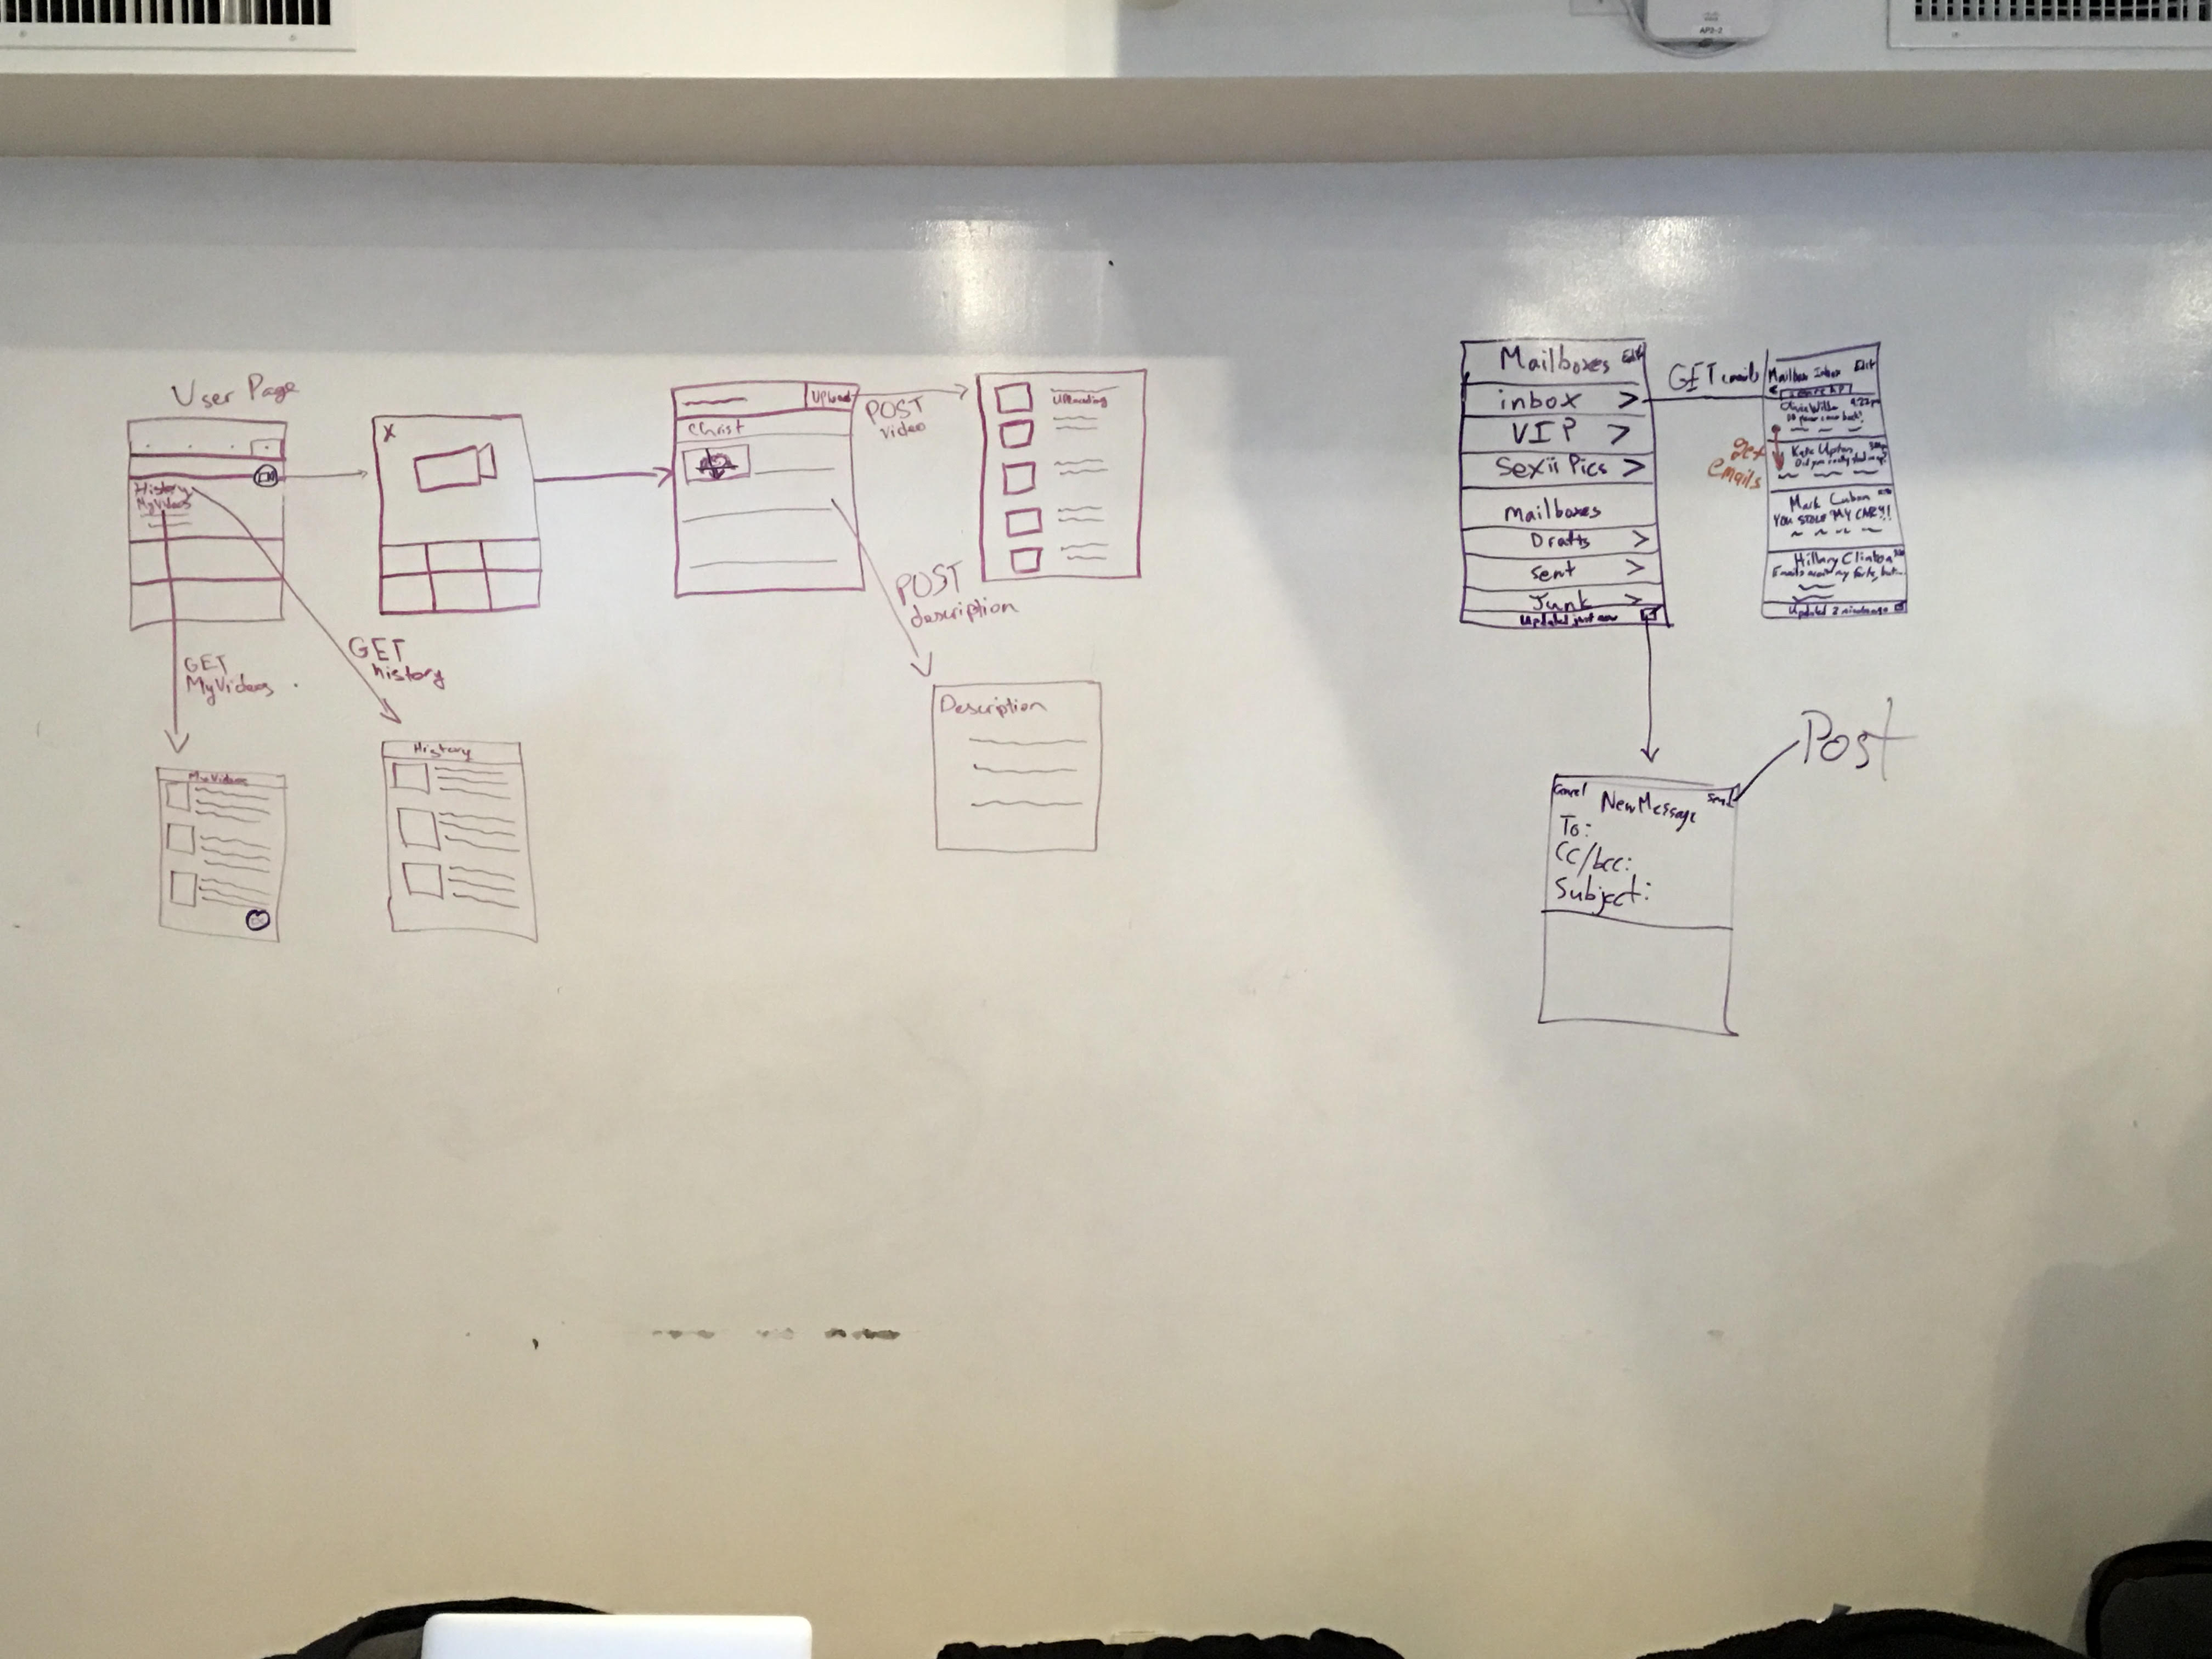 AP2-2
User Page
History
MyVideos
GET
MyVideos
GET
history
MyVideos
History
X
Upload
Christ
POST
video
Uploading
POST
description
Description
Mailboxes Edit
inbox >
VIP >
Sexii Pics >
mailboxes
Drafts >
sent >
Junk >
Updated just now
GET emails
get
emails
Mailbox Inbox Edit
Kate Upton
Mark Cuban
YOU STOLE MY CAR?!!
Hillary Clinton
Emails aren't my forte, but...
Updated 2 minutes ago
Post
Cancel New Message Send
To:
CC/bcc:
Subject: